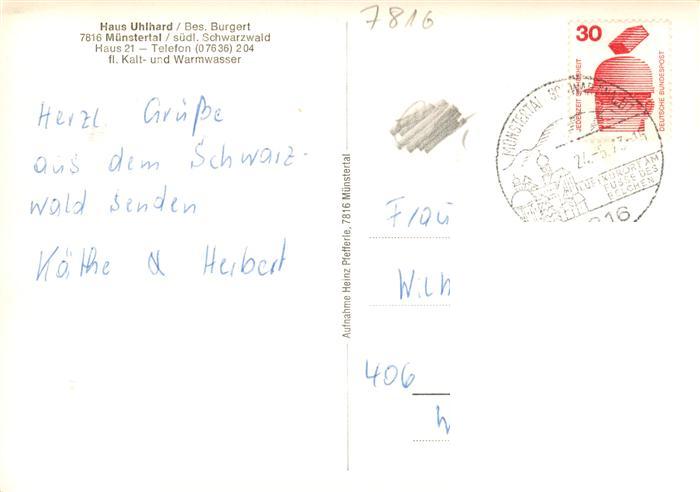 Haus Uhlhard / Bes. Burgert
7816 Münstertal / südl. Schwarzwald
Haus 21 – Telefon (07636) 204
fl. Kalt- und Warmwasser
Herzl. Grüße
aus dem Schwarz-
wald senden
Käthe & Herbert
Aufnahme Heinz Pfefferle, 7816 Münstertal
7816
30
JEDERZEIT SICHERHEIT
DEUTSCHE BUNDESPOST
MÜNSTERTAL SCHWARZWALD
LUFTKURORT AM
FUSSE DES
BELCHEN
7816
Frau
Wilh
406